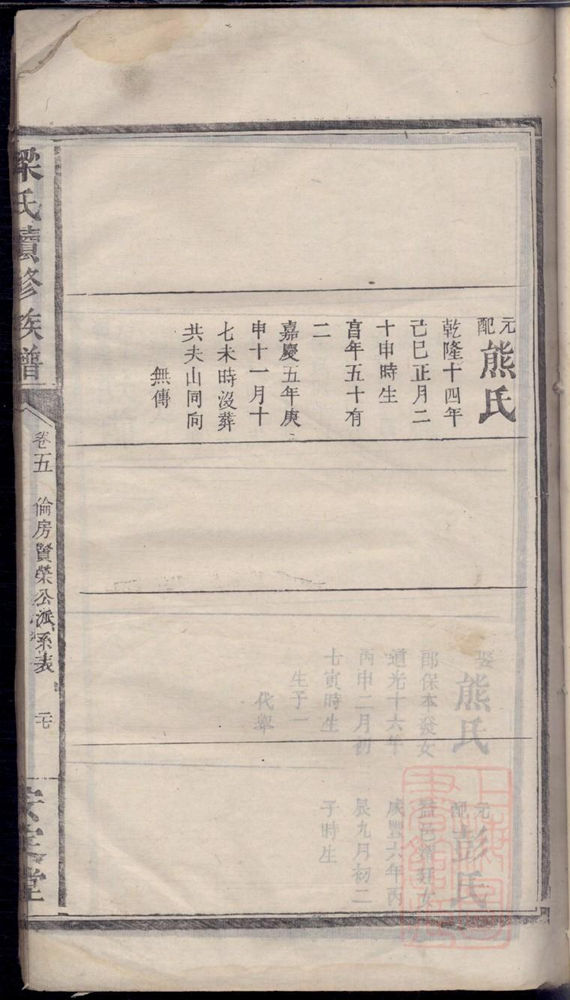 元配熊氏
乾隆十四年
己巳正月二
十申時生
享年五十有
二
嘉慶五年庚
申十一月十
七未時沒葬
共夫山同向
無傳
娶熊氏
郎保本發女
道光十六年
丙申二月初
七寅時生
生子一
代舉
元配彭氏
咸豐六年丙
辰九月初二
子時生
梁氏續修族譜
卷五
倫房賢榮公派系表
安定堂